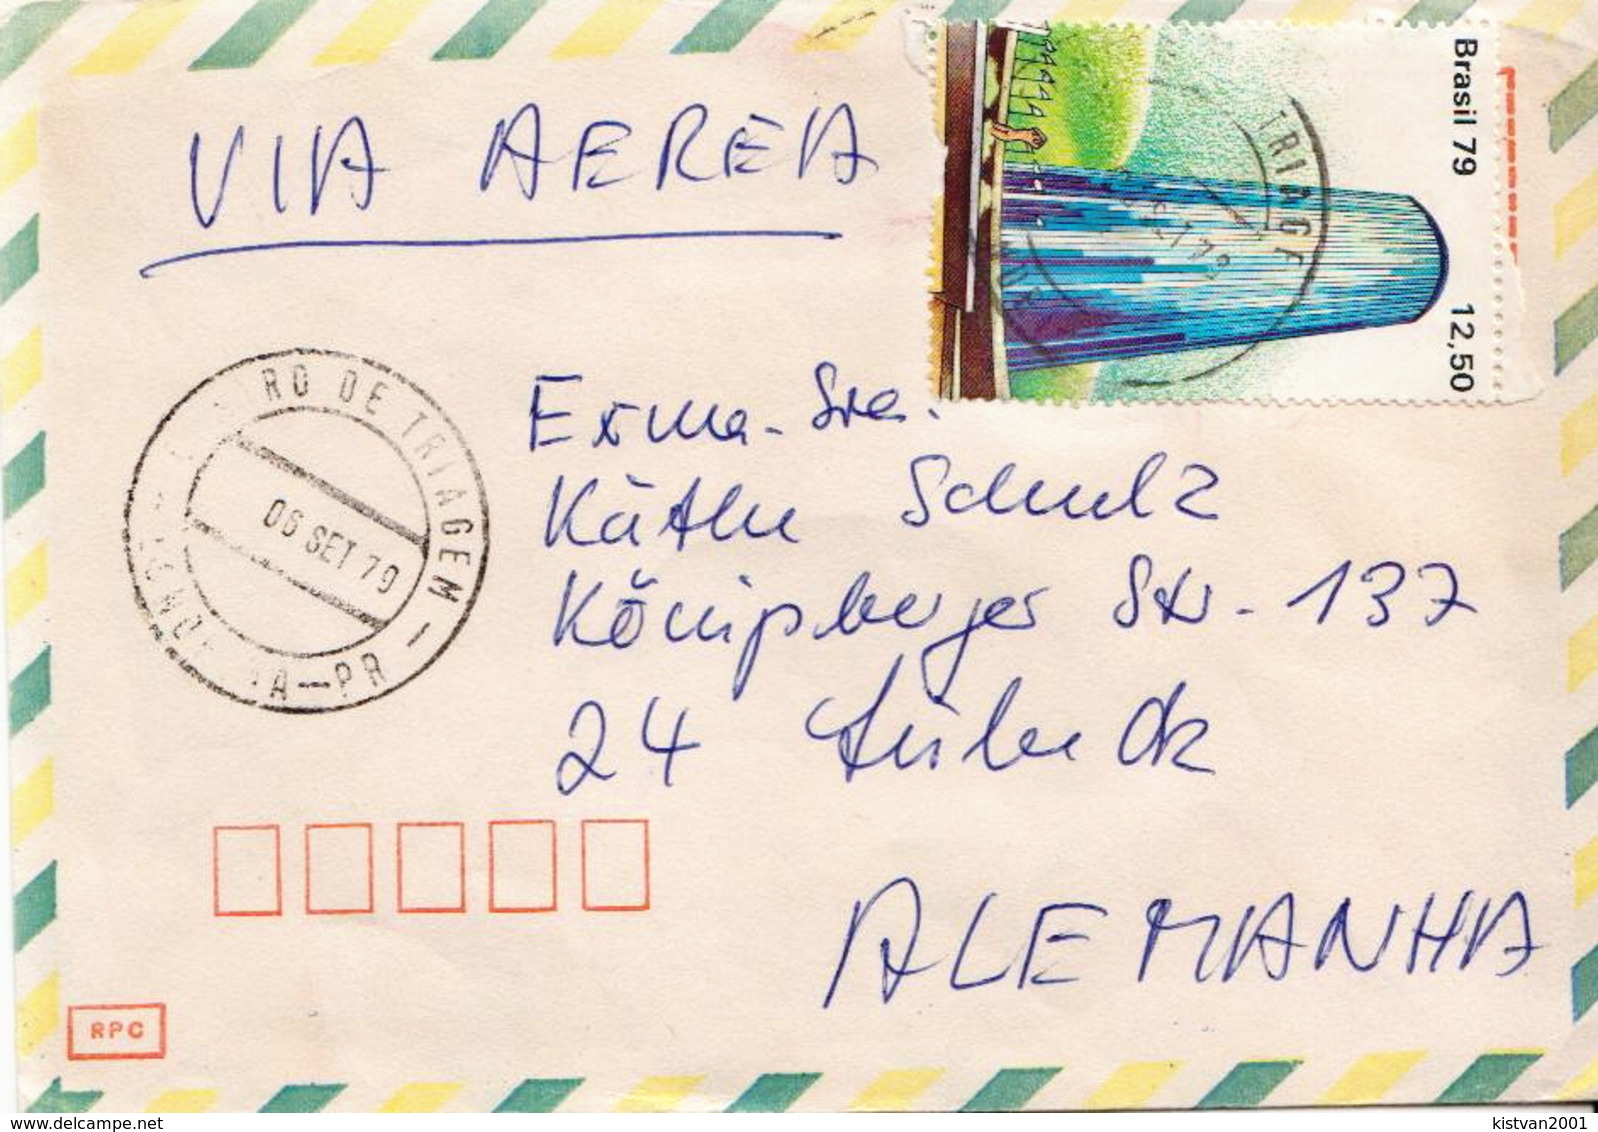 VIA AEREA
Brasil 79
12,50
TRIAGE
TRO DE TRIAGEM
06 SET 79
NA—PR
Exma. Sra.
Käthe Schulz
Königsberger Str. 137
24 Lübeck
ALEMANHA
RPC
kistvan2001